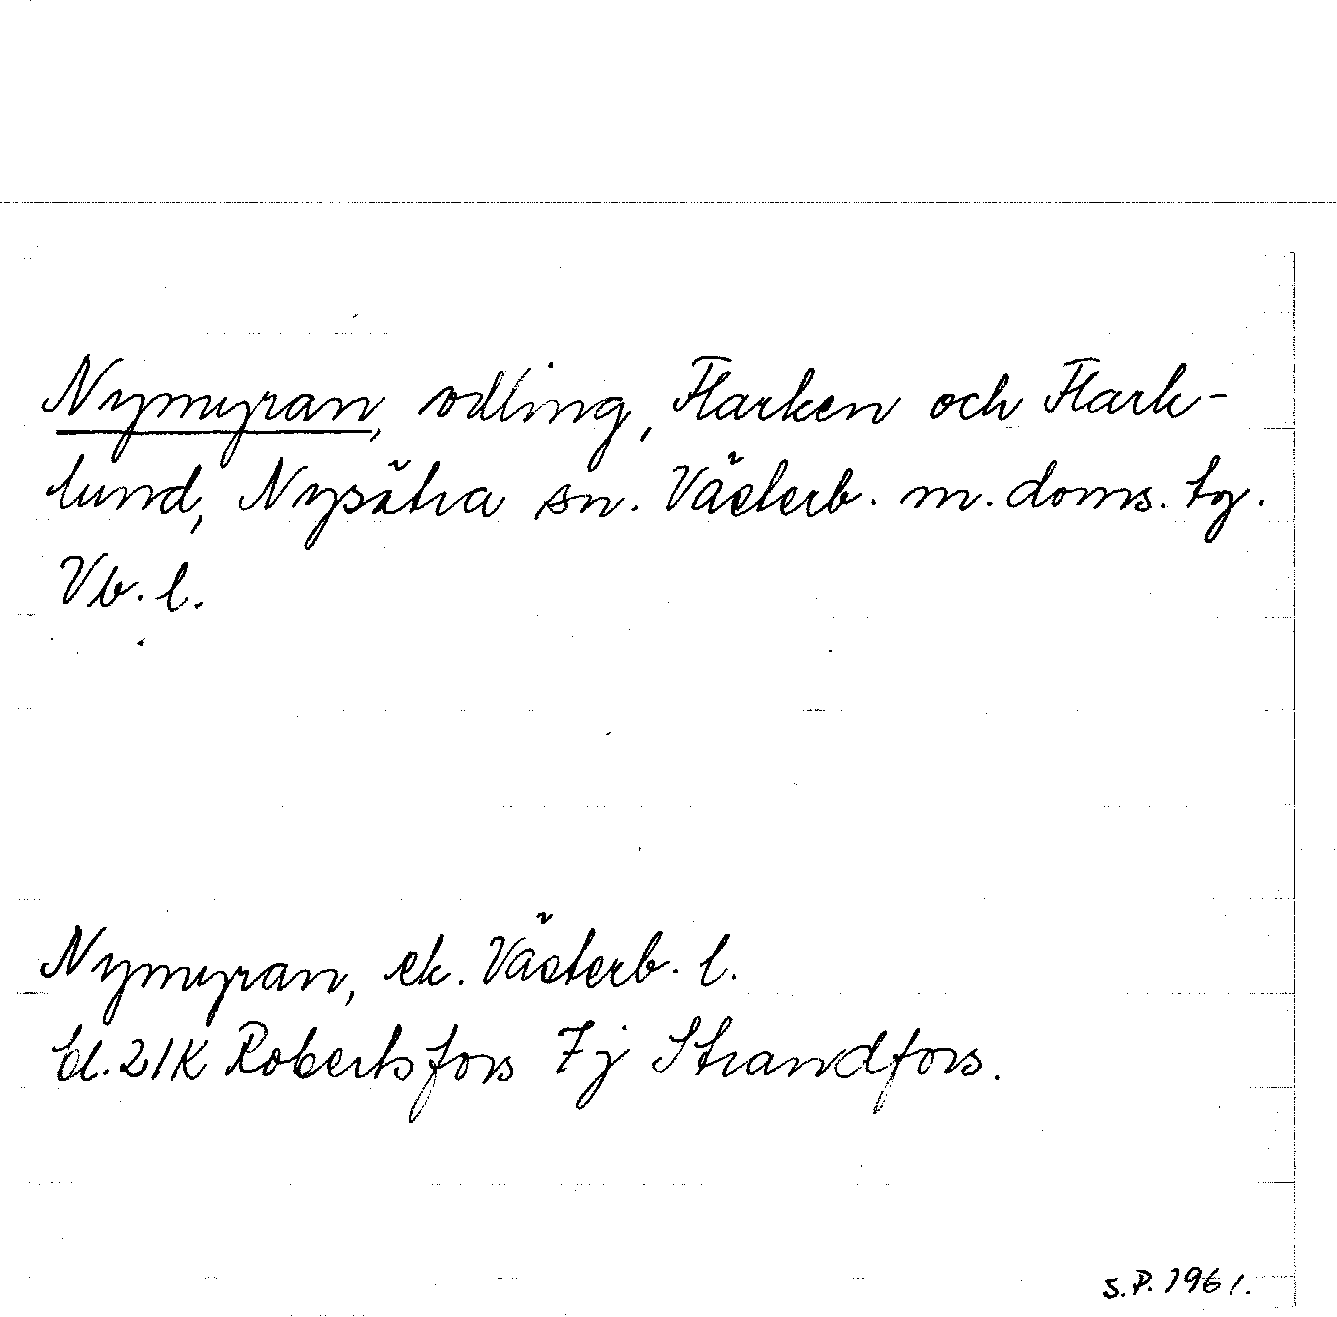 Nymyran, odling, Flarken och Flark-
lund, Nysätra sn. Västerb. m. doms. tg.
Vb. l.
Nymyran, ek. Västerb. l.
bl. 21K Robertsfors 7j Strandfors.
S.P. 1961.